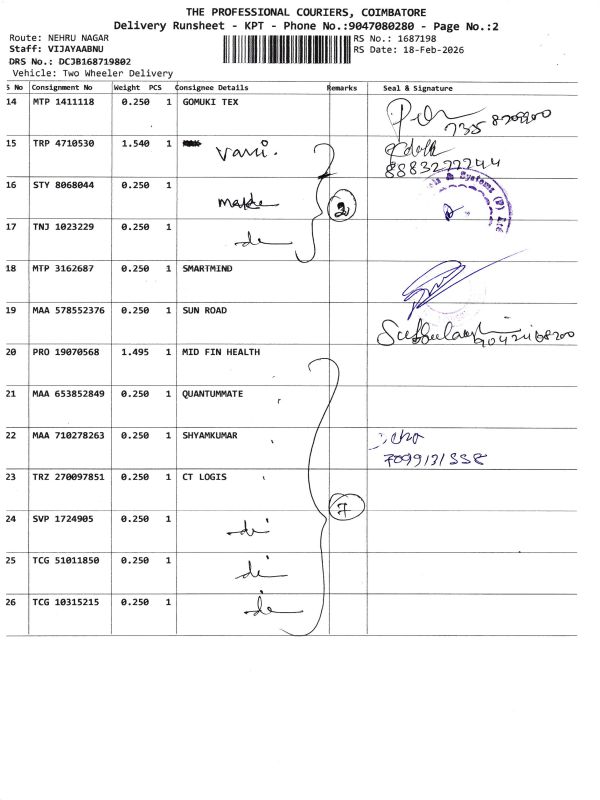 THE PROFESSIONAL COURIERS, COIMBATORE
Delivery Runsheet - KPT - Phone No.:9047080280 - Page No.:2
Route: NEHRU NAGAR
RS No.: 1687198
Staff: VIJAYAABNU
RS Date: 18-Feb-2026
DRS No.: DCJB168719802
Vehicle: Two Wheeler Delivery
S No Consignment No Weight PCS Consignee Details Remarks Seal & Signature
14 MTP 1411118 0.250 1 GOMUKI TEX
15 TRP 4710530 1.540 1 Vani.
8883277744
16 STY 8068044 0.250 1
2
Systems (P) Ltd
17 TNJ 1023229 0.250 1
18 MTP 3162687 0.250 1 SMARTMIND
19 MAA 578552376 0.250 1 SUN ROAD
20 PRO 19070568 1.495 1 MID FIN HEALTH
21 MAA 653852849 0.250 1 QUANTUMMATE
22 MAA 710278263 0.250 1 SHYAMKUMAR
7099131558
23 TRZ 270097851 0.250 1 CT LOGIS
7
24 SVP 1724905 0.250 1
25 TCG 51011850 0.250 1
26 TCG 10315215 0.250 1